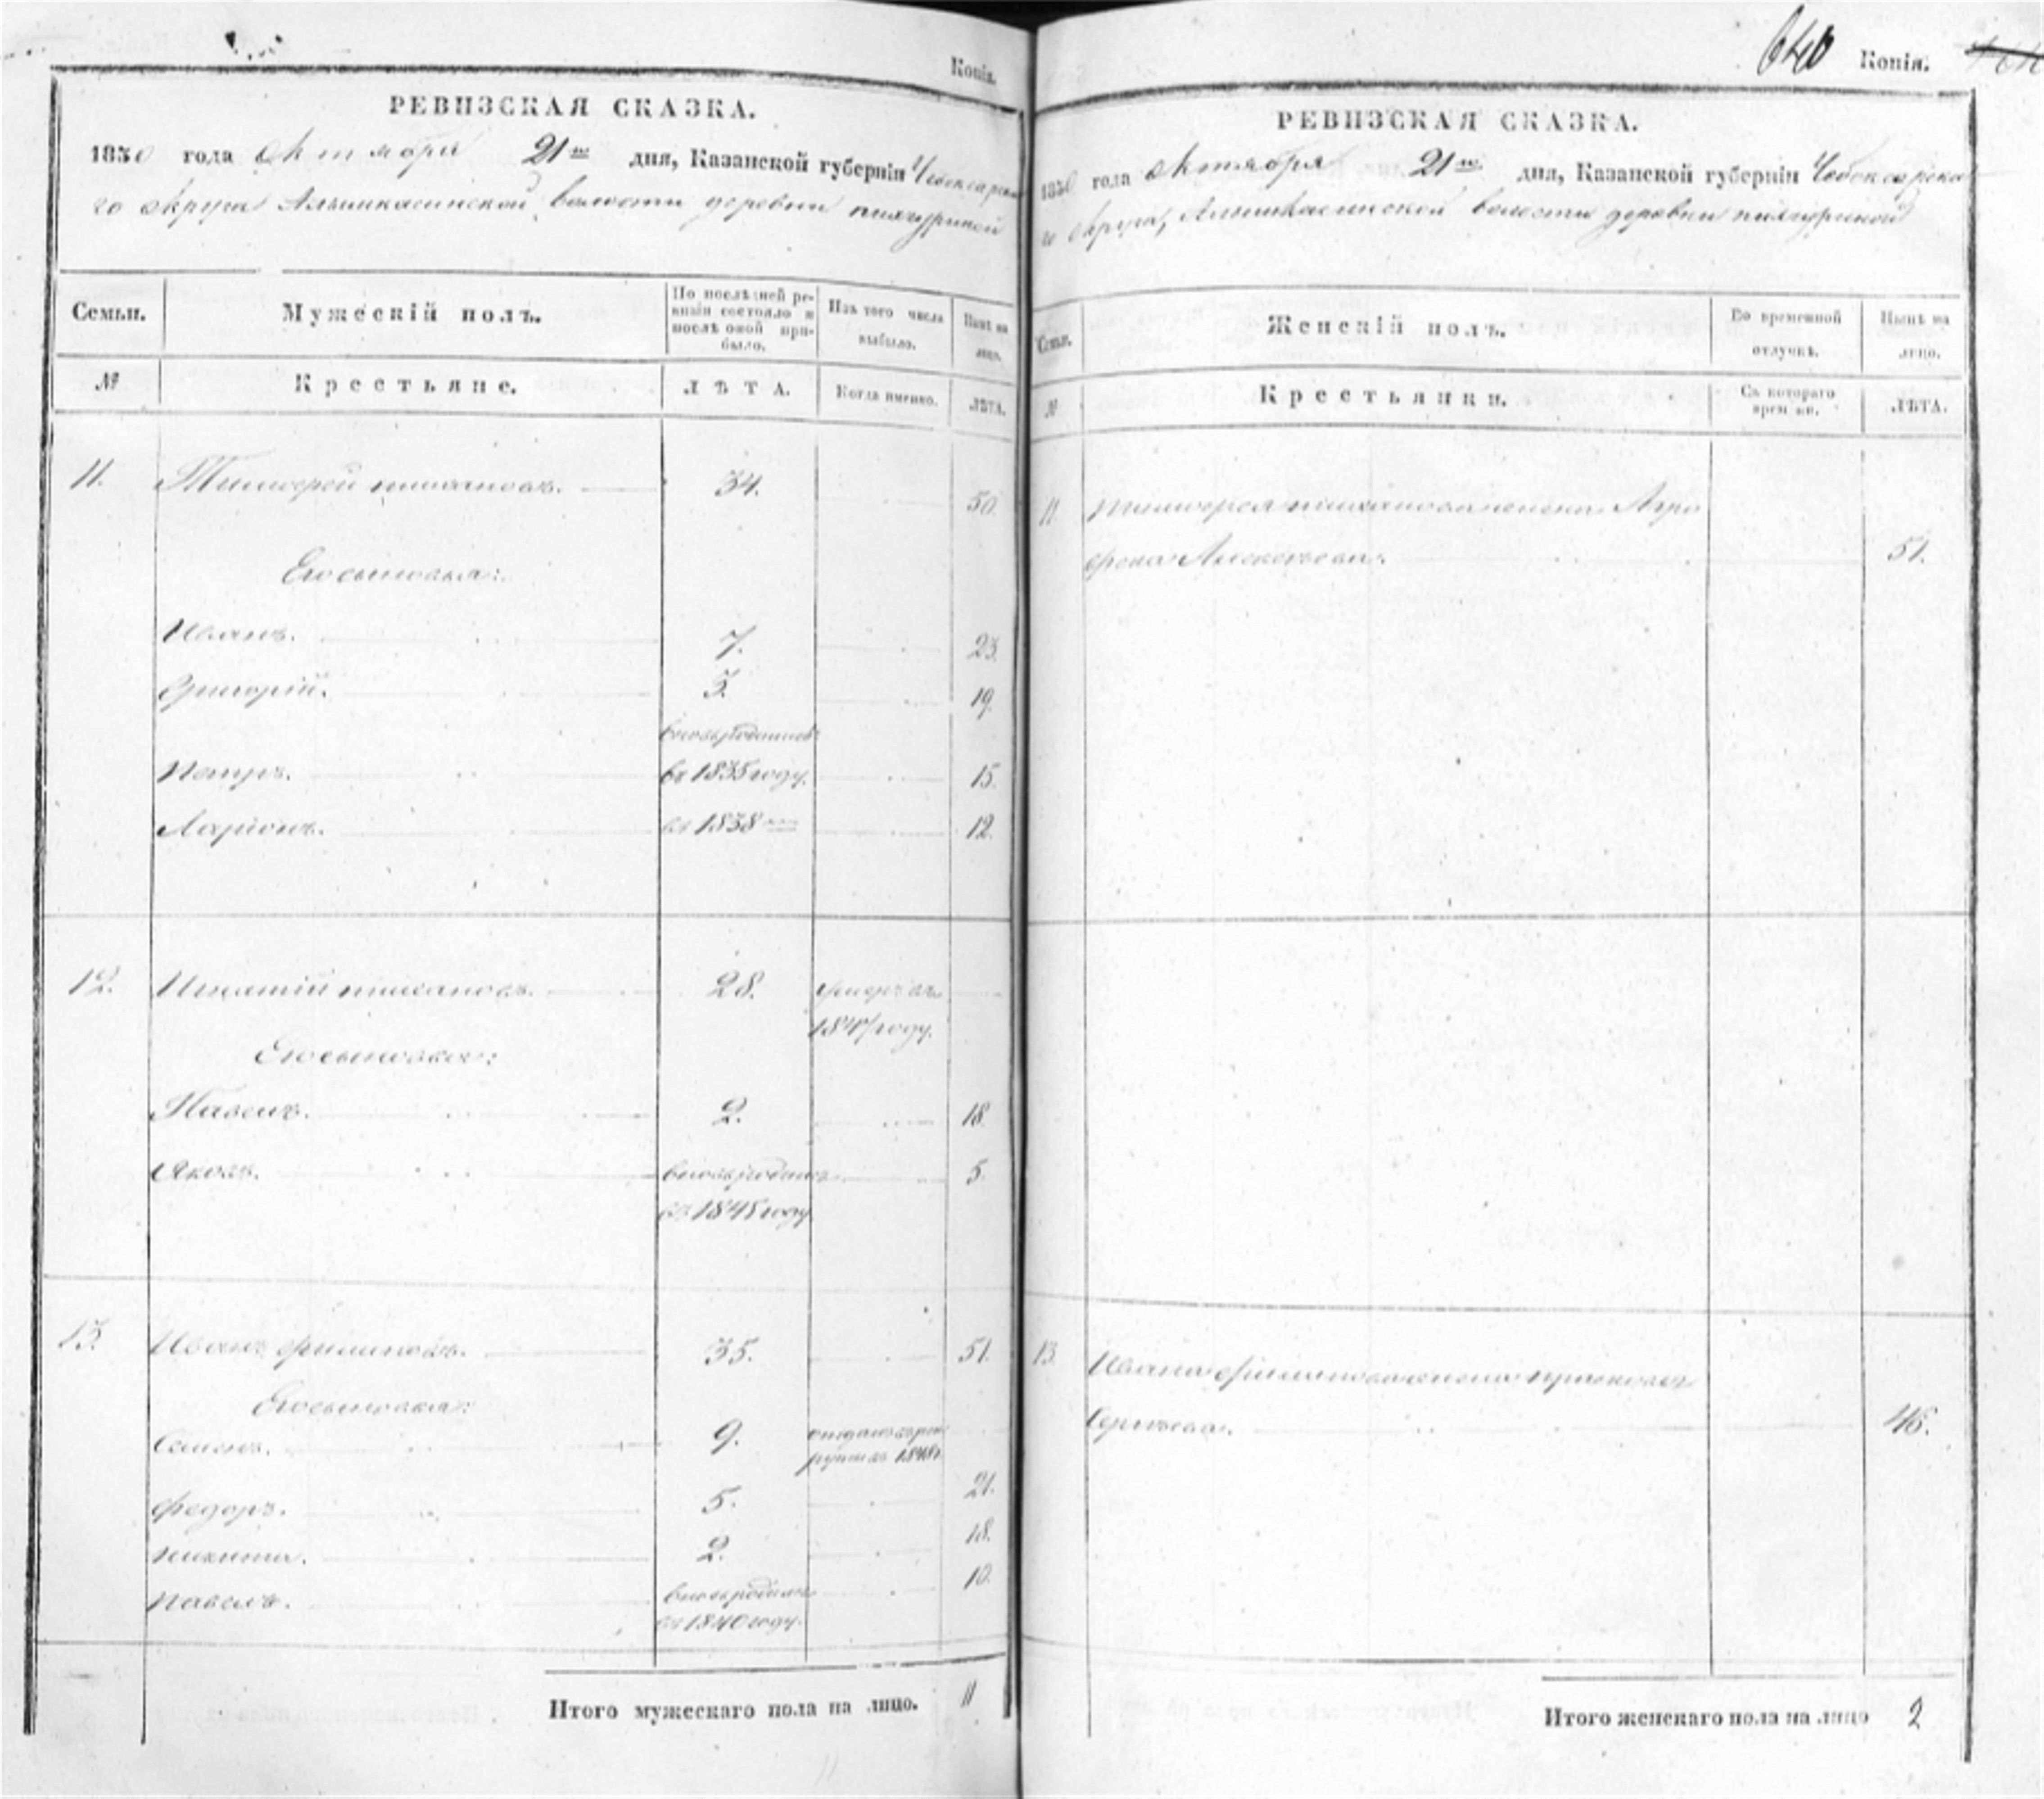 Копія.
РЕВИЗСКАЯ СКАЗКА.
1850 года октября 21го дня, Казанской губерніи Чебоксарска
го округа Альминкасинской волости деревни
Семьи.
Мужескій полъ.
По послѣдней ре-
визіи состояло и
послѣ оной при-
было.
Изъ того числа
выбыло.
Нынѣ на
лицо.
№
Крестьяне.
ЛѢТА.
Когда именно.
ЛѢТА.
11.
34.
50.
Его сыновья:
Иванъ.
7.
23.
Григорій.
3.
19.
Петръ.
въ 1835 году.
15.
Ларіонъ.
въ 1838
12.
12.
Игнатій
28.
умеръ въ
1847 году.
Его сыновья:
Павелъ.
2.
18.
Яковъ.
5.
въ 1845 году
13.
Иванъ Филиповъ.
35.
51.
Его сыновья:
Семенъ.
9.
отданъ въ рек
руты въ 1848 г.
Федоръ.
5.
21.
Никита.
2.
18.
Павелъ.
10.
въ 1840 году.
Итого мужескаго пола на лицо. 11
640 Копія.
РЕВИЗСКАЯ СКАЗКА.
1850 года октября 21го дня, Казанской губерніи Чебоксарска
го округа, Альминкасинской волости деревни
Семьи.
Женскій полъ.
Во временной
отлучкѣ.
Нынѣ на
лицо.
№
Крестьянки.
Съ котораго
времени.
ЛѢТА.
11.
жена Агро
фена Алексѣева.
51.
13.
Ивана Филипова жена
Сергѣева.
46.
Итого женскаго пола на лицо 2